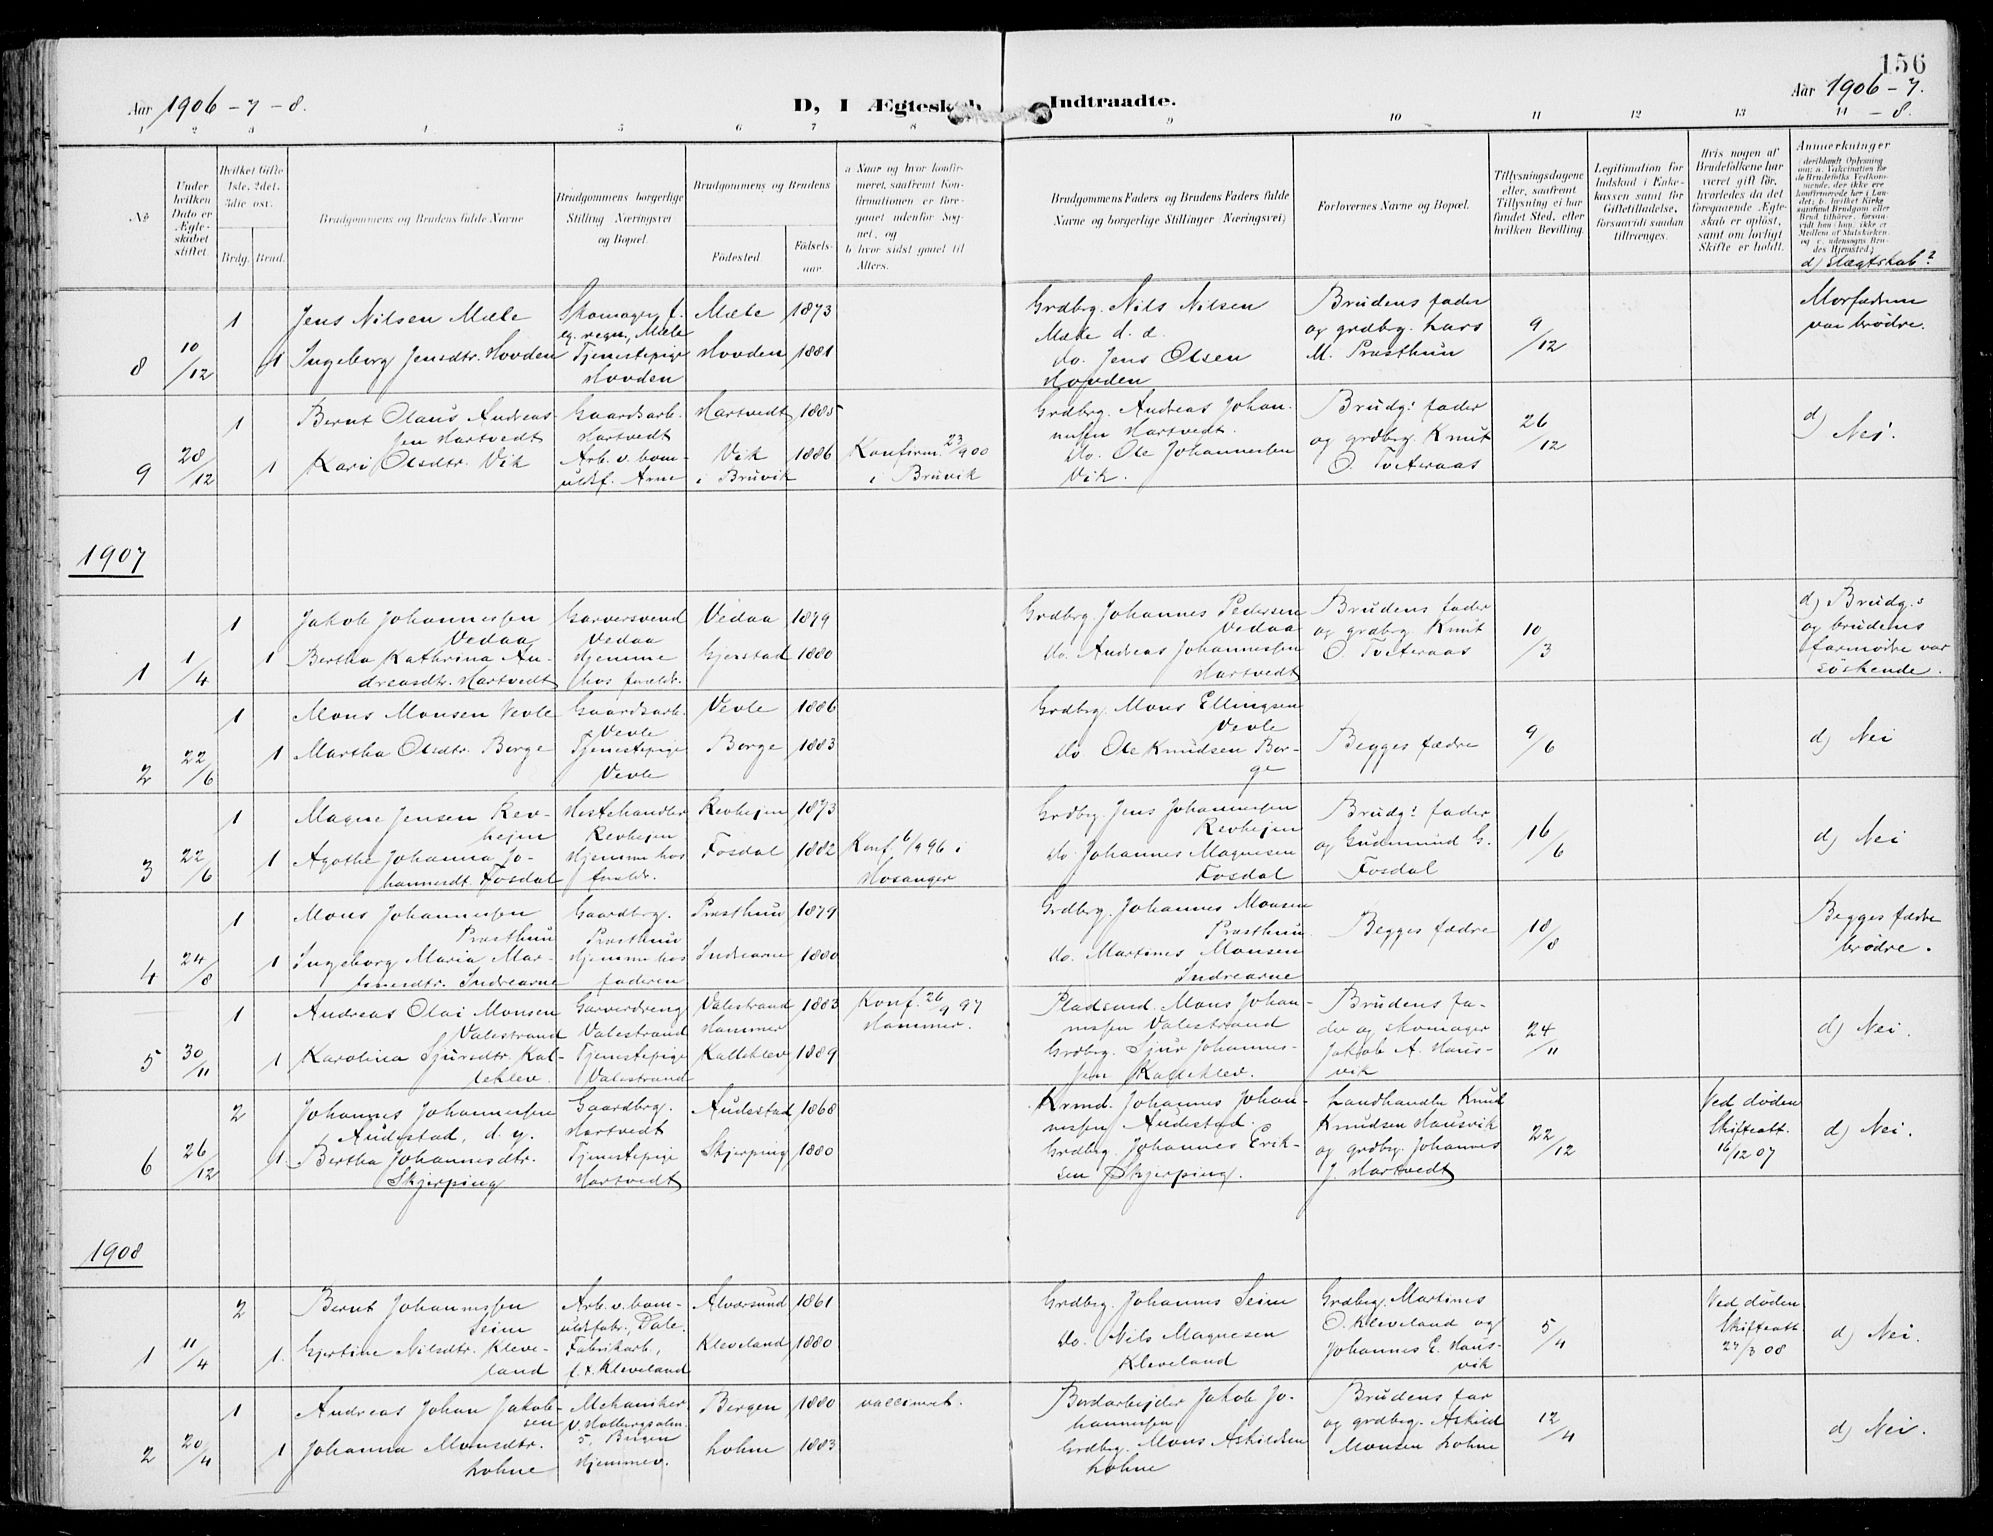 156
Aar 1906 - 7 - 8.
D, I Ægteskab Indtraadte.
Aar 1906 - 7.
- 8.
1 2 3 4 5 6 7 8 9 10 11 12 13 14
No
Under hvilken Dato er Ægteskabet stiftet.
Hvilket Gifte 1ste. 2det. 3die osv.
Brdg. Brud.
Brudgommens og Brudens fulde Navne
Brudgommens borgerlige Stilling Næringsvei og Bopæl.
Brudgommens og Brudens
Fødested.
Fødselsaar.
a Naar og hvor konfirmeret, saafremt Konfirmationen er foregaaet udenfor Sognet, og
b hvor sidst gaaet til Alters.
Brudgommens Faders og Brudens Faders fulde Navne og borgerlige Stillinger Næringsvei)
Forlovernes Navne og Bopæl.
Tillysningsdagene eller, saafremt Tillysning ei har fundet Sted, efter hvilken Bevilling.
Legitimation for Indskud i Enkekassen samt for Giftetilladelse, forsaavidt saadan tiltrænges.
Hvis nogen af Brudefolkene har været gift før, hvorledes da det foregaaende Ægteskab er opløst, samt om lovligt Skifte er holdt.
Anmærkninger
d) Slægtskab?
8
10/12
1
1
Jens Nilsen Mæle
Ingeborg Jensdtr. Hovden
Skomager f.
eg. regn, Mæle
Tjenestepige
Hovden
Mæle 1873
Hovden 1881
Grdbrg. Nils Nilsen
Mæle d. d.
do. Jens Olsen
Hovden
Brudens fader
og grdbrg. Lars
M. Præsthun
9/12
Morfædrene
var brødre.
9
28/12
1
1
Bernt Olaus Andreas-
sen Hartvedt
Kari Olsdtr. Vik
Gaardsarb.
Hartvedt
Arb. v. bom-
uldsf. Arne
Hartvedt 1885
Vik 1886
i Bruvik
Konfirm. 23/9 00
i Bruvik
Grdbrg. Andreas Johan-
nessen Hartvedt.
do. Ole Johannessen
Vik.
Brudg: fader
og grdbrg. Knut
O. Tveteraas
26/12
d) Nei.
1907
1
1/4
1
1
Jakob Johannessen
Vedaa
Bertha Kathrina An-
dreasdtr. Hartvedt
Garversvend
Vedaa
Hjemme
hos forældr.
Vedaa 1879
Gjerstad 1880
Grdbrg. Johannes Pedersen
Vedaa
do. Andreas Johannessen
Hartvedt
Brudens fader
og grdbrg. Knut
O. Tveteraas
10/3
d) Brudg.s
og brudens
farmødre var
søskende.
2
22/6
1
1
Mons Monsen Vevle
Martha Olsdtr. Borge
Gaardsarb.
Vevle
Tjenestepige
Vevle
Vevle 1886
Borge 1883
Grdbrg. Mons Ellingsen
Vevle
do Ole Knudsen Bor-
ge
Begges fædre
9/6
d) Nei
3
22/6
1
1
Magne Jensen Rev-
hejen
Agothe Johanna Jo-
hannesdt. Fosdal
Hestehandler
Revhejen
Hjemme hos
forældr.
Revhejen 1873
Fosdal 1882
Konf. 6/9 96 i
Hosanger
Grdbrg. Jens Johannessen
Revhejen
do. Johannes Magnesen
Fosdal
Brudg: fader
og Gudmund G.
Fosdal
16/6
d) Nei
4
24/8
1
1
Mons Johannessen
Præsthun
Ingeborg Maria Mar-
tinesdtr. Indrearne
Gaardbrg.
Præsthun
Hjemme hos
faderen
Præsthun 1879
Indrearne 1880
Grdbrg. Johannes Monsen
Præsthun
do. Martines Monsen
Indrearne
Begges fædre
18/8
Begges fædre
brødre.
5
30/11
1
1
Andreas Olai Monsen
Valestrand
Karolina Sjursdtr. Kal-
leklev.
Garverdreng
Valestrand
Tjenestepige
Valestrand
Valestrand 1883
Hammer
Kalleklev 1889
Konf. 26/9 97
Hammer.
Pladsmd. Mons Johan-
nessen Valestrand
Grdbrg. Sjur Johannes-
sen Kalleklev.
Brudens fa-
der og skomager
Jakob A. Haus-
vik
24/11
d) Nei.
6
26/12
2
1
Johannes Johannessen
Audestad, d. y.
Bertha Johannesdtr.
Skjerping
Gaardbrg.
Hartvedt
Tjenestepige
Hartvedt
Audestad 1868
Skjerping 1880
Krmd. Johannes Johan-
nessen Audestad.
Grdbrg. Johannes Erik-
sen Skjerping.
Landhandler Knud
Knudsen Hausvik
og grdbrg. Johannes
J. Hartvedt
22/12
Ved døden
Skifteatt.
16/12 07
d) Nei.
1908
1
11/4
2
1.
Bernt Johannessen
Seim
Gjertine Nilsdtr. Kleve-
land
Arb. v. bom-
uldsfabr., Dale.
Fabrikarb,
f. t. Kleveland
Alversund 1861
Kleveland 1880
Grdbrg. Johannes Seim
do. Nils Magnesen
Kleveland
Grdbrg. Martines
O. Kleveland og
Johannes E. Haus-
vik
5/4
Ved døden
Skifteatt.
27/3 08
d) Nei.
2
20/4
1
1
Andreas Johan Jakob-
sen
Johanna Monsdtr.
Lohne
Mekaniker
v. Holbergsalm.
5, Bergen
Hjemmev.
Bergen 1880
Lohne 1883
vaccineret.
Bordarbejder Jakob Jo-
hannessen
Grdbrg. Mons Askildsen
Lohne
Brudens far
og grdbrg. Askild
Monsen Lohne
12/4
d) Nei.